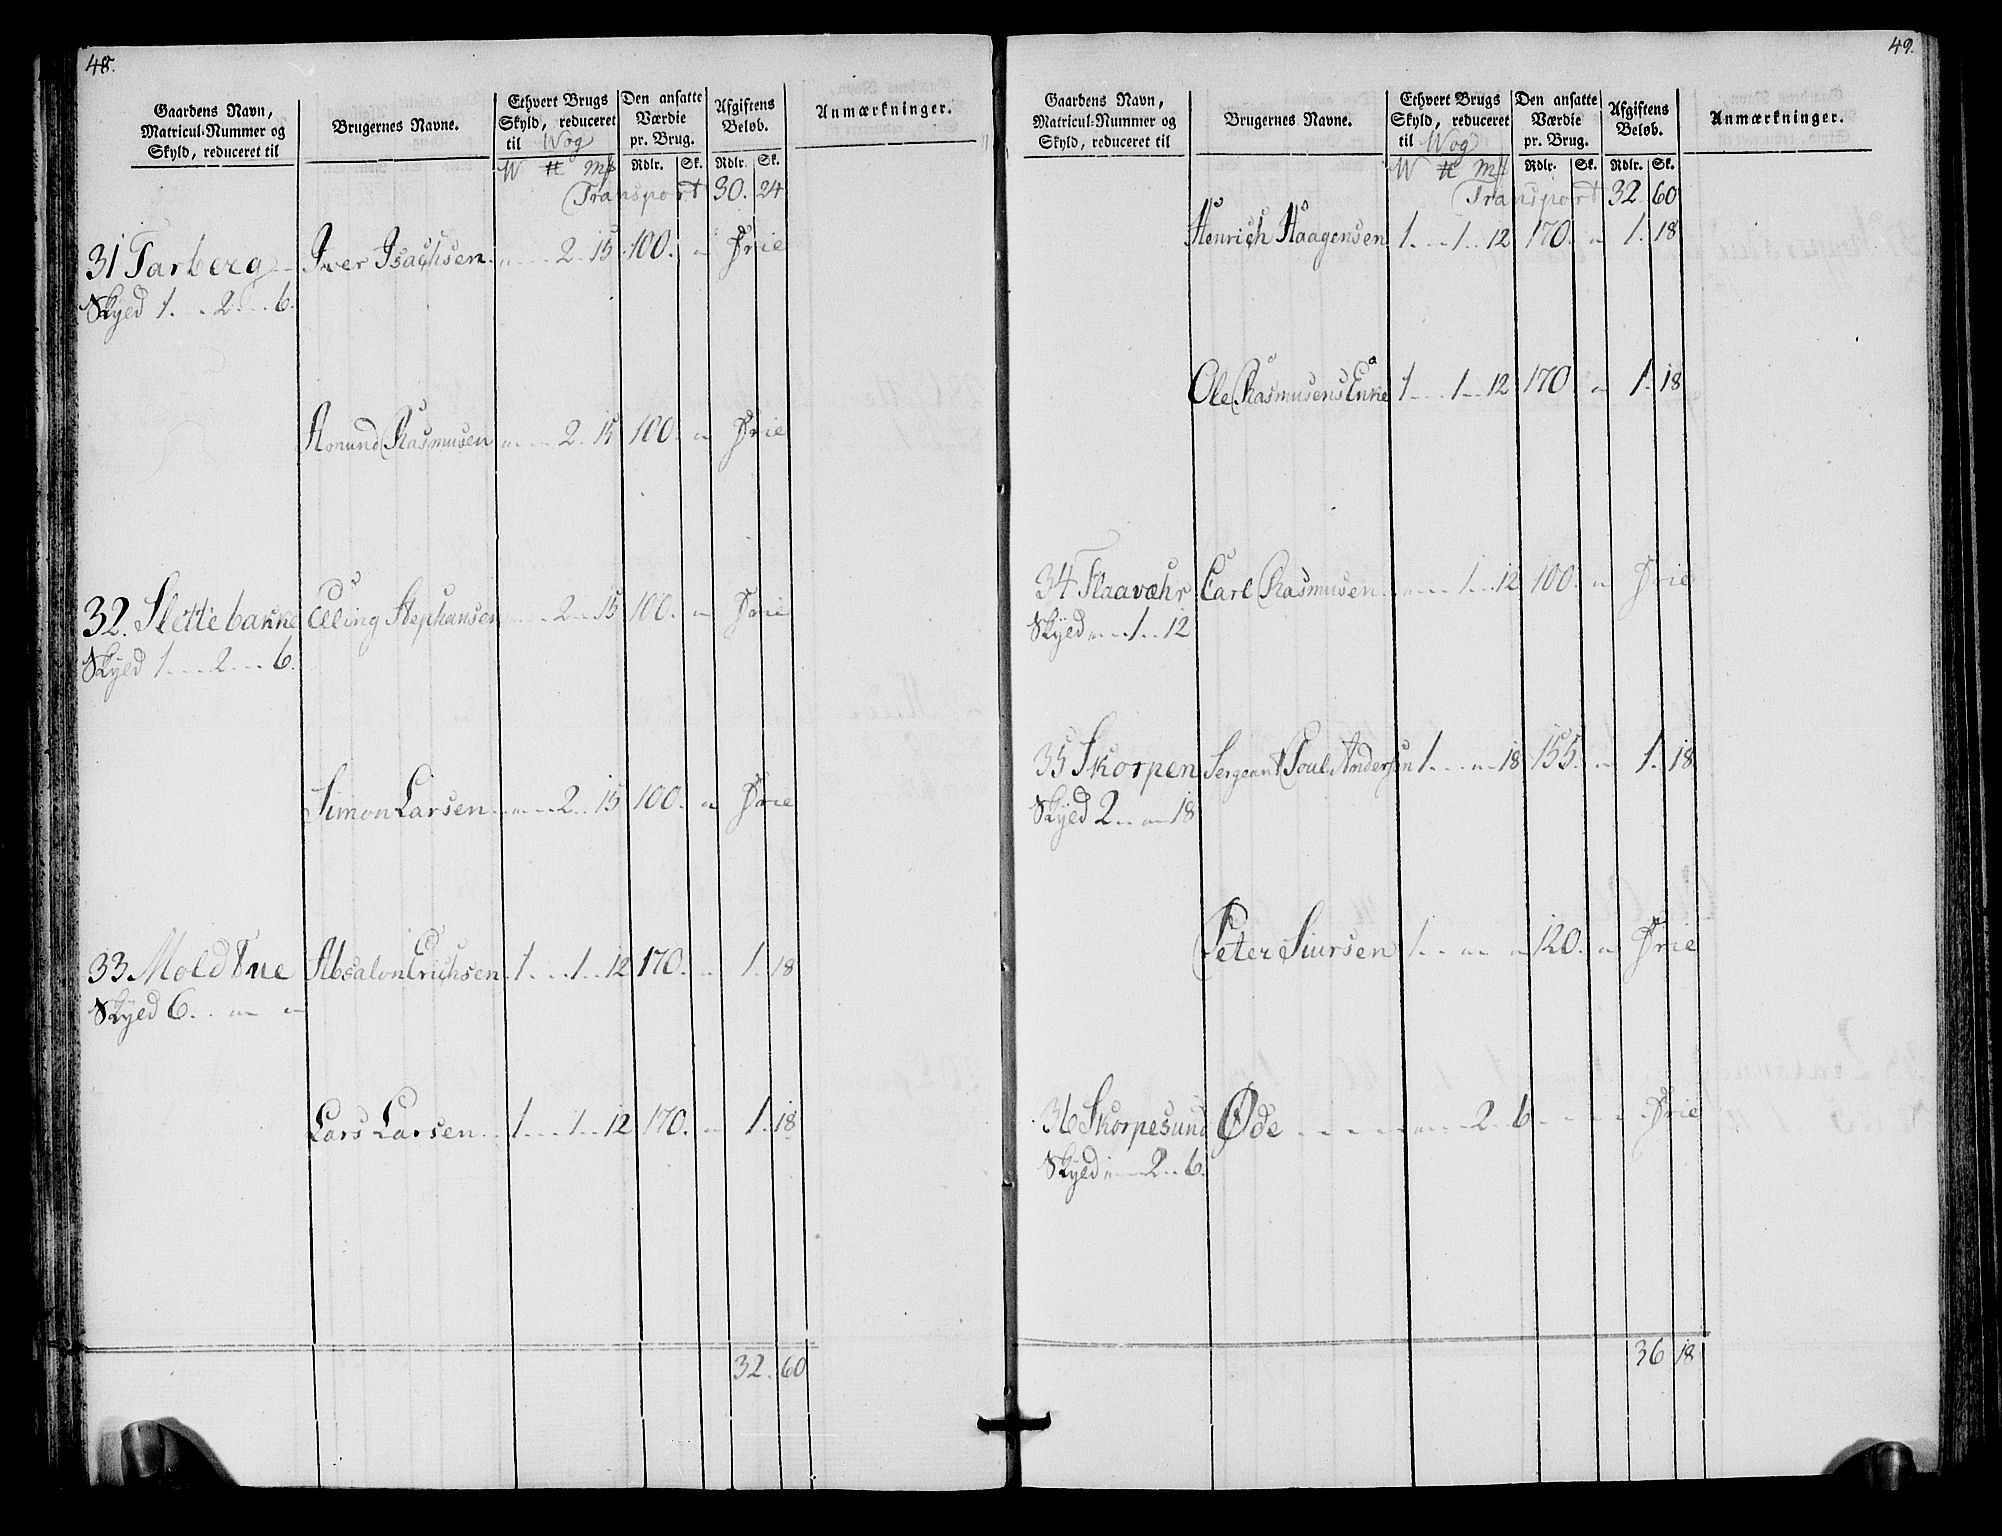 48.
Gaardens Navn, Matricul-Nummer og Skyld, reduceret til
Brugernes Navne.
Ethvert Brugs Skyld, reduceret til Wog
W ℔ Mk
Den ansatte Værdie pr. Brug.
Rdlr. Sk.
Afgiftens Beløb.
Rdlr. Sk.
Anmærkninger.
Transport 30. 24
31 Tarberg Iver Isachsen 2 15 100. Frie
Skyld 1. 2 6.
Amund Rasmusen 2. 15 100. Frie
32. Slettebakke Elling Stephansen 2 15 100. Frie
Skyld 1 2 6.
Simon Larsen 2 15 100. Frie
33 Moldtue Absalon Erichsen 1 1 12 170. 1. 18
Skyld 6.
Lars Larsen 1 1 12 170. 1. 18
32. 60
49.
Gaardens Navn, Matricul-Nummer og Skyld, reduceret til
Brugernes Navne.
Ethvert Brugs Skyld, reduceret til Wog
W ℔ Mk
Den ansatte Værdie pr. Brug.
Rdlr. Sk.
Afgiftens Beløb.
Rdlr. Sk.
Anmærkninger.
Transport 32 60
Henrich Haagensen 1 1 12 170. 1. 18
Ole Rasmusens Enke 1 1 12 170 1. 18
34 Flaavæhr Carl Rasmusen 1 12 100. Frie
Skyld 1 12
35 Skorpen Sergeant Poul Andersen 1 18 155. 1. 18
Skyld 2 18
Peter Siursen 1 120. Frie
36 Skorpesund Øde 2 6 Frie
Skyld 2 6.
36 18